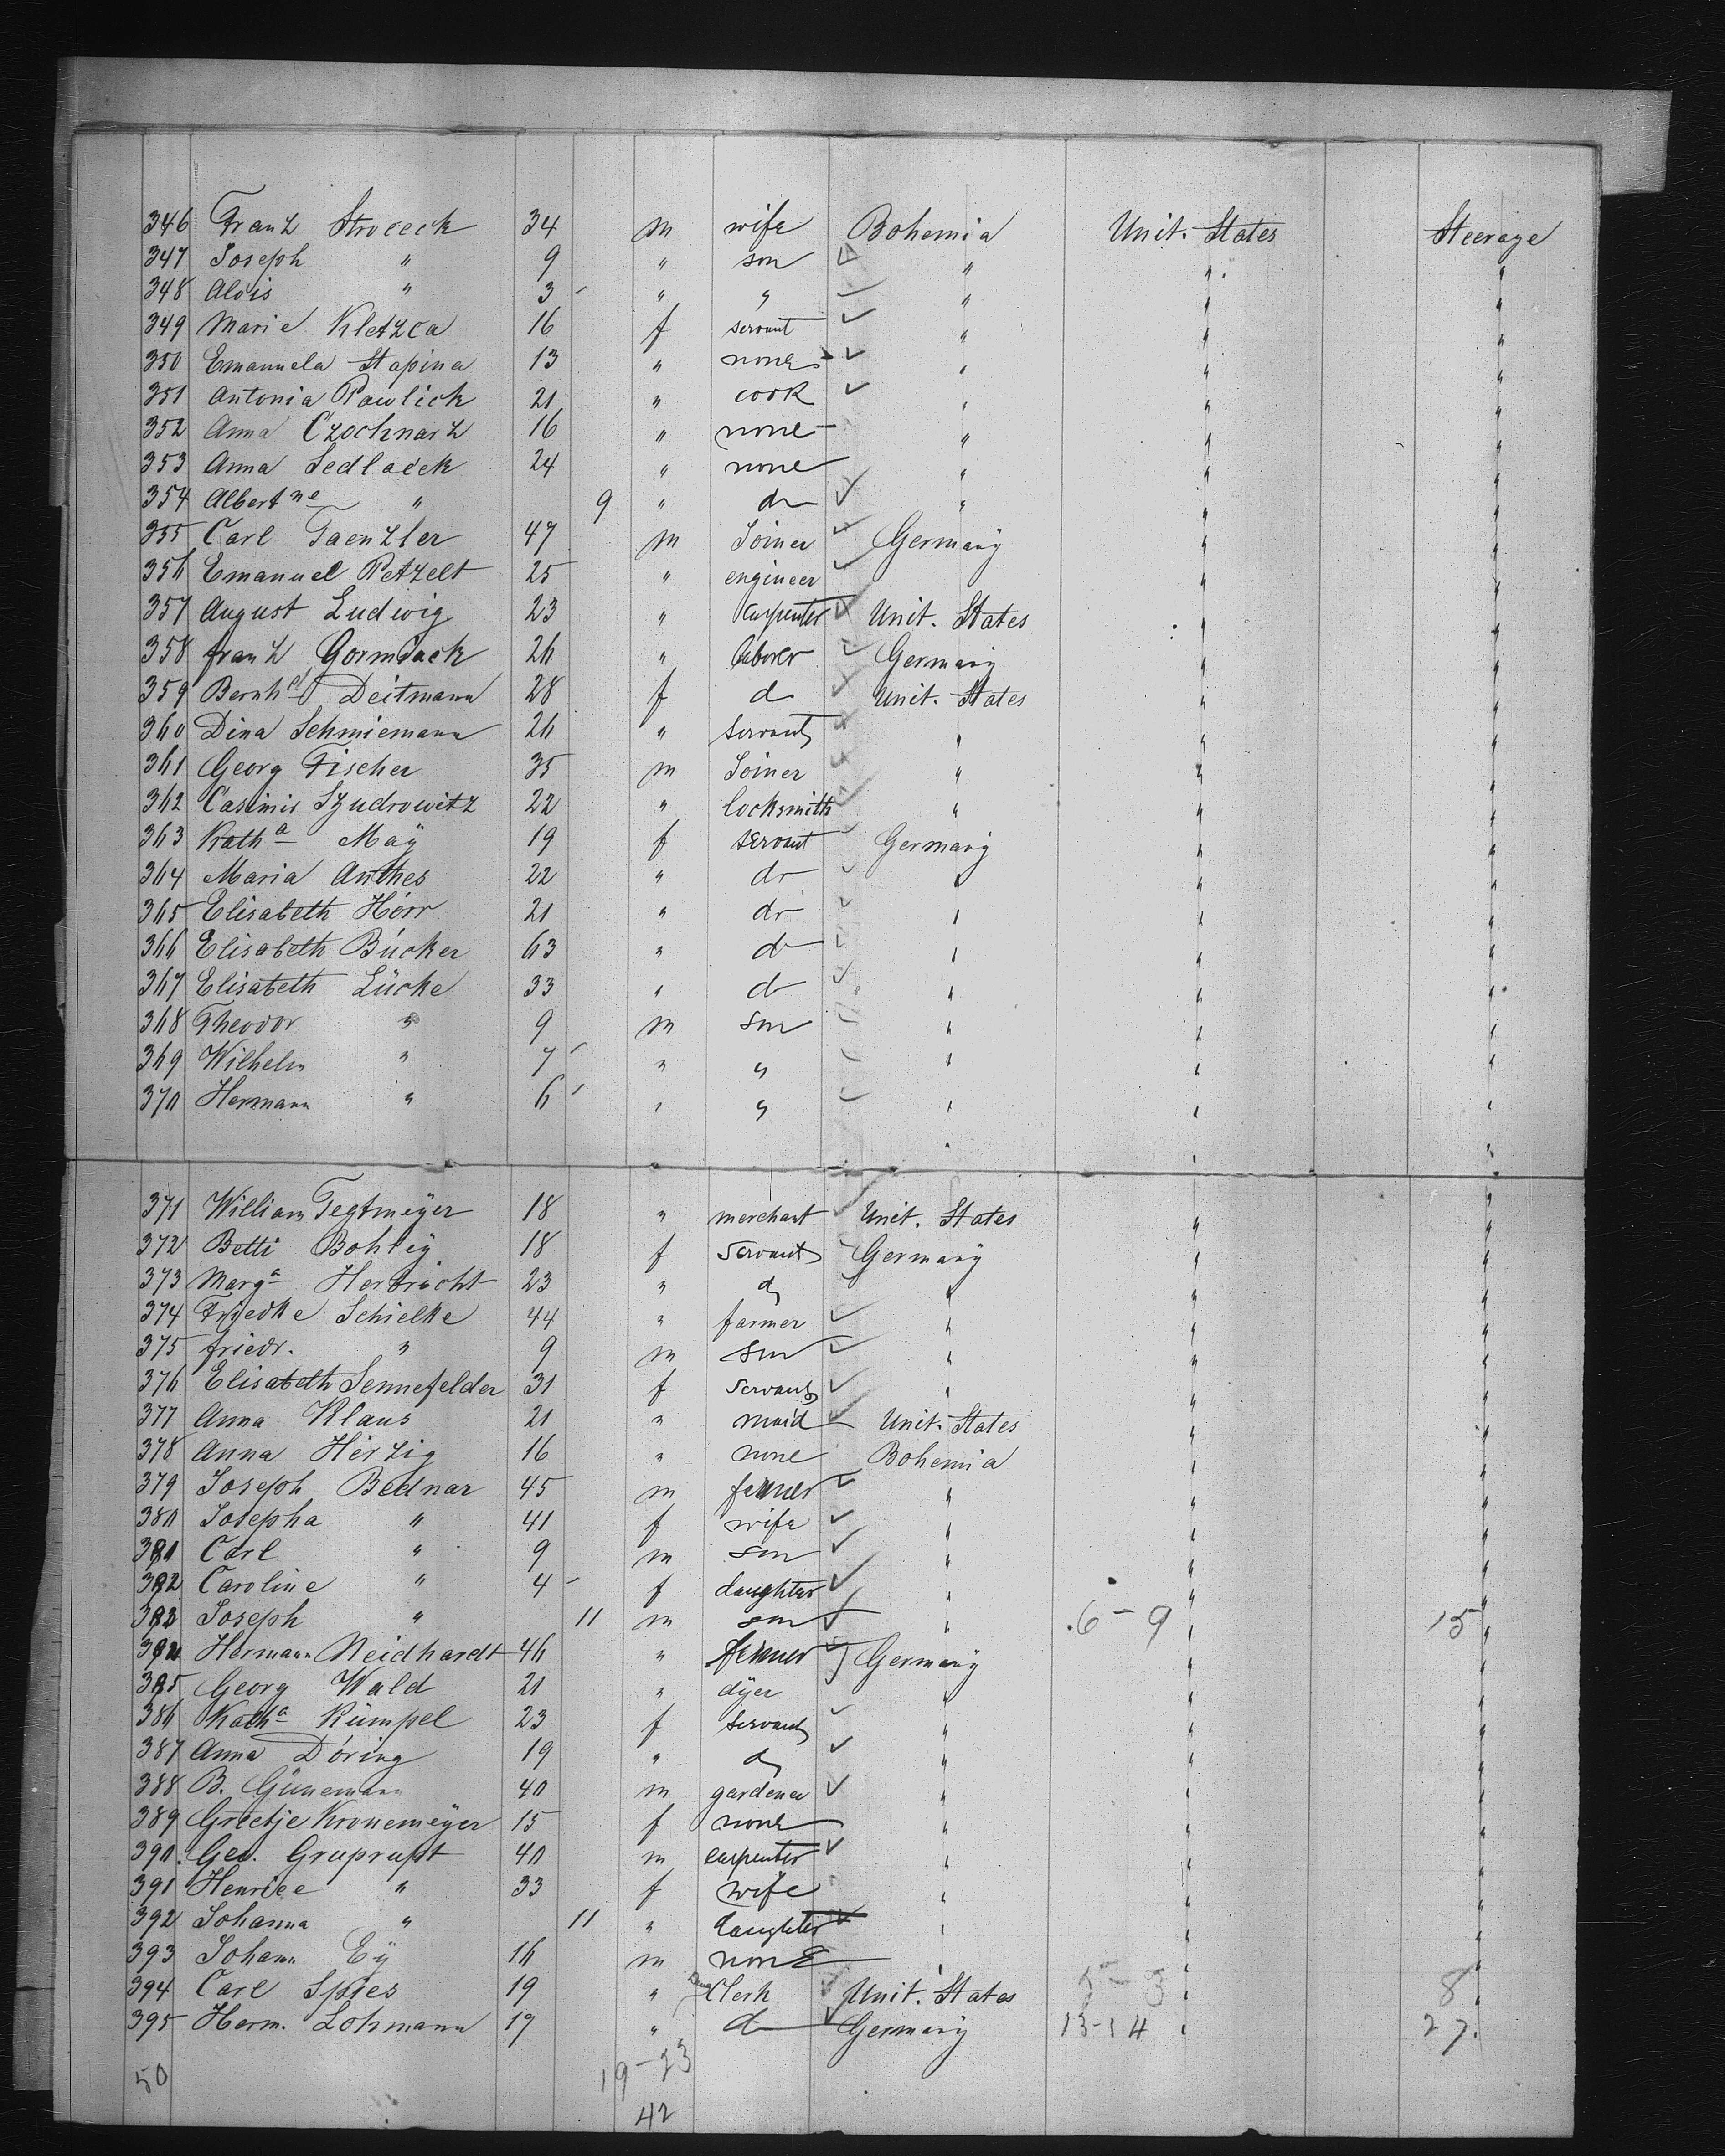 346 Franz Stroceck 34 m wife Bohemia Unit. States Steerage
347 Joseph " 9 " son " " "
348 Alois " 3 " " " " "
349 Marie Kletzca 16 f servant " " "
350 Emanuela Stapina 13 " none " " "
351 Antonia Pawlick 21 " cook " " "
352 Anna Czochnarz 16 " none " " "
353 Anna Sedlacek 24 " none " " "
354 Albertne " 9 " do " " "
355 Carl Taenzler 47 m Joiner Germany " "
356 Emanuel Petzelt 25 " engineer " "
357 August Ludwig 23 " carpenter Unit. States " "
358 franz 26 " laborer Germany " "
359 Bernhd Deitmann 28 f d Unit. States " "
360 Dina Schmiemann 26 " servant " " "
361 Georg Fischer 35 m Joiner " " "
362 Casimir Szudrowitz 22 " locksmith " " "
363 Katha May 19 f servant Germany " "
364 Maria Anthes 22 " do " " "
365 Elisabeth Hörr 21 " do " " "
366 Elisabeth Bücker 63 " do " " "
367 Elisabeth Lücke 33 " do " " "
368 Theodor " 9 m son " " "
369 Wilhelm " 7 " " " " "
370 Hermann " 6 " " " " "
371 William Tegtmeÿer 18 " merchant Unit. States " "
372 Betti Bohleÿ 18 f servant Germanÿ " "
373 Marga Herbricht 23 " d " " "
374 Friedke Schielke 44 " farmer " " "
375 friedr. " 9 m son " " "
376 Elisabeth Sennefelder 31 f servant " " "
377 Anna Klaus 21 " maid Unit. States " "
378 Anna Herzig 16 " none Bohemia " "
379 Joseph Bednar 45 m farmer " " "
380 Josepha " 41 f wife " " "
381 Carl " 9 m son " " "
382 Caroline " 4 f daughter " " "
383 Joseph " 11 m son " 6-9 " 15 "
384 Hermann Neidhardt 46 " farmer Germanÿ " "
385 Georg Wald 21 " dÿer " " "
386 Katha Rümpel 23 f servant " " "
387 Anna Döring 19 " d " " "
388 B. Günemann 40 m gardener " " "
389 Greetje Kronemeÿer 15 f none " " "
390 Geo. 40 m carpenter " " "
391 Henriee " 33 f wife " " "
392 Johanna " 11 " daughter " " "
393 Johann Eÿ 16 m none " " "
394 Carl Spies 19 " Clerk Unit. States 5-3 " 8 "
395 Herm. Lohmann 19 " d Germanÿ 13-14 " 27
50 19-23
42